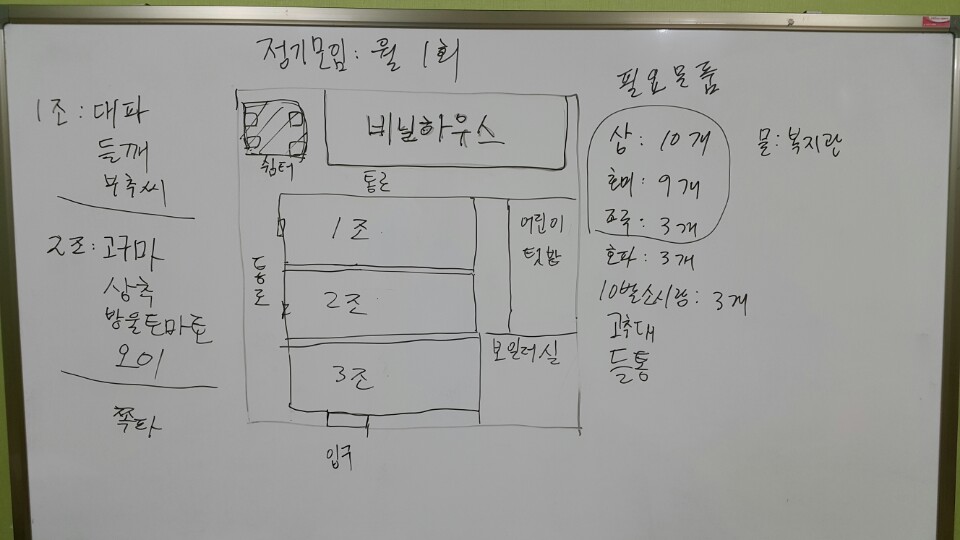 정기모임: 월 1회
1조: 대파
들깨
부추씨
2조: 고구마
상추
방울토마토
오이
쪽파
쉼터
비닐하우스
통로
통로
1조
2조
3조
어린이
텃밭
보일러실
입구
필요물품
삽: 10개
호미: 9개
조루: 3개
호파: 3개
10발쇠시랑: 3개
고추대
들통
물: 복지관